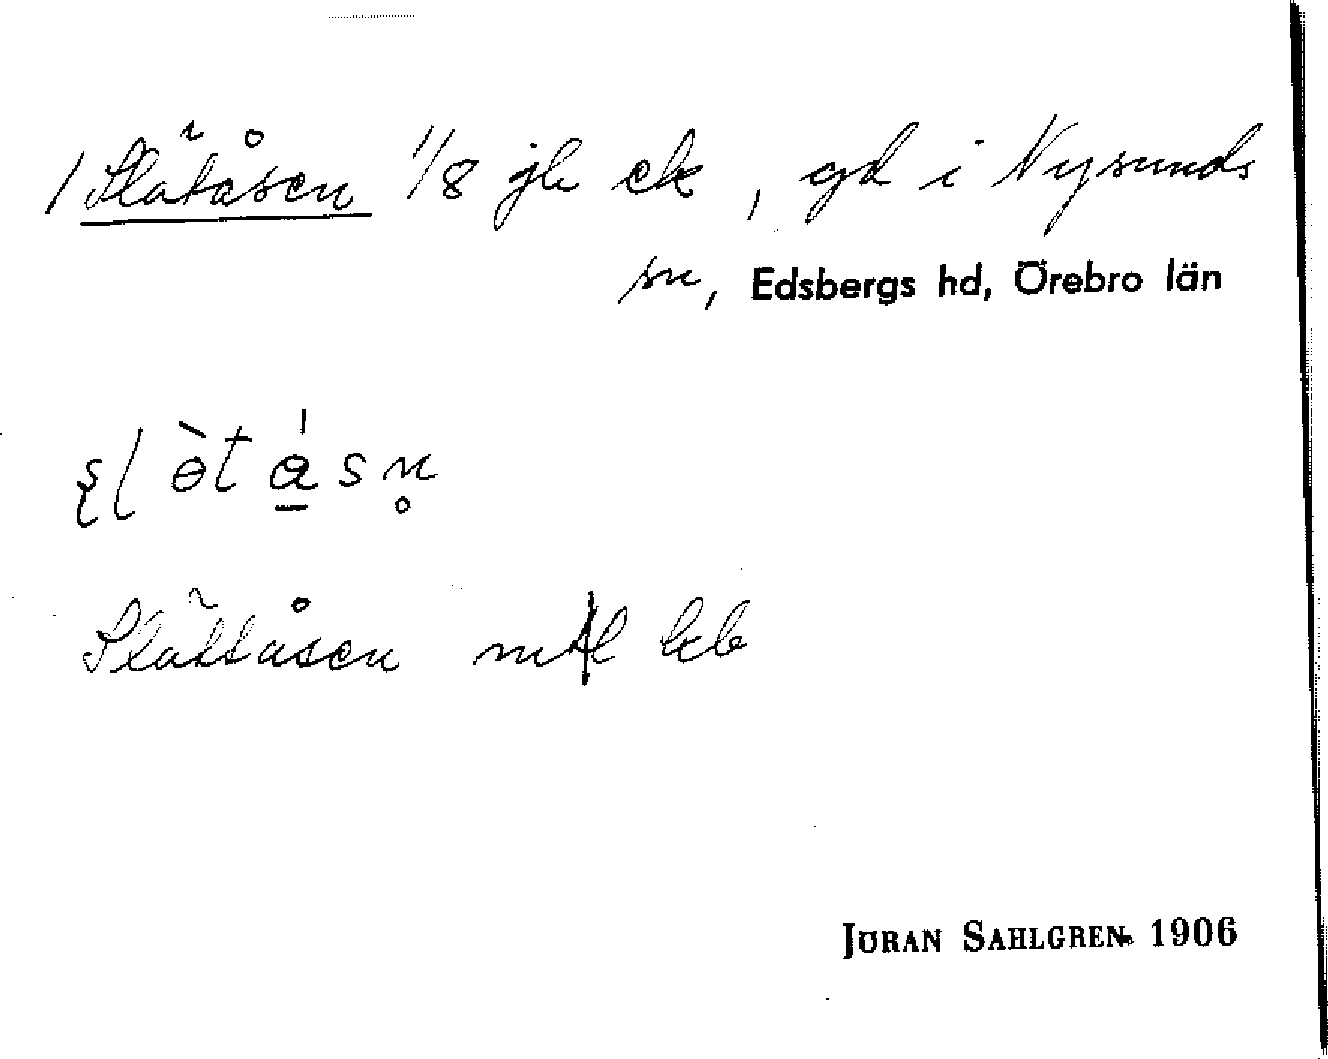 / Slätåsen 1/8 jb ek, gd i Nysunds
sn, Edsbergs hd, Örebro län
Slättåsen
JÖRAN SAHLGREN 1906